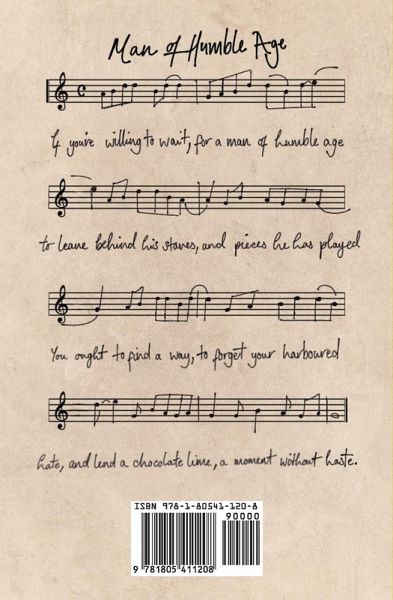 Man of Humble Age
If you're willing to wait, for a man of humble age
to leave behind his staves, and pieces he has played
You ought to find a way, to forget your harboured
hate, and lend a chocolate lime, a moment without haste.
ISBN 978-1-80541-120-8
90000
9 781805 411208